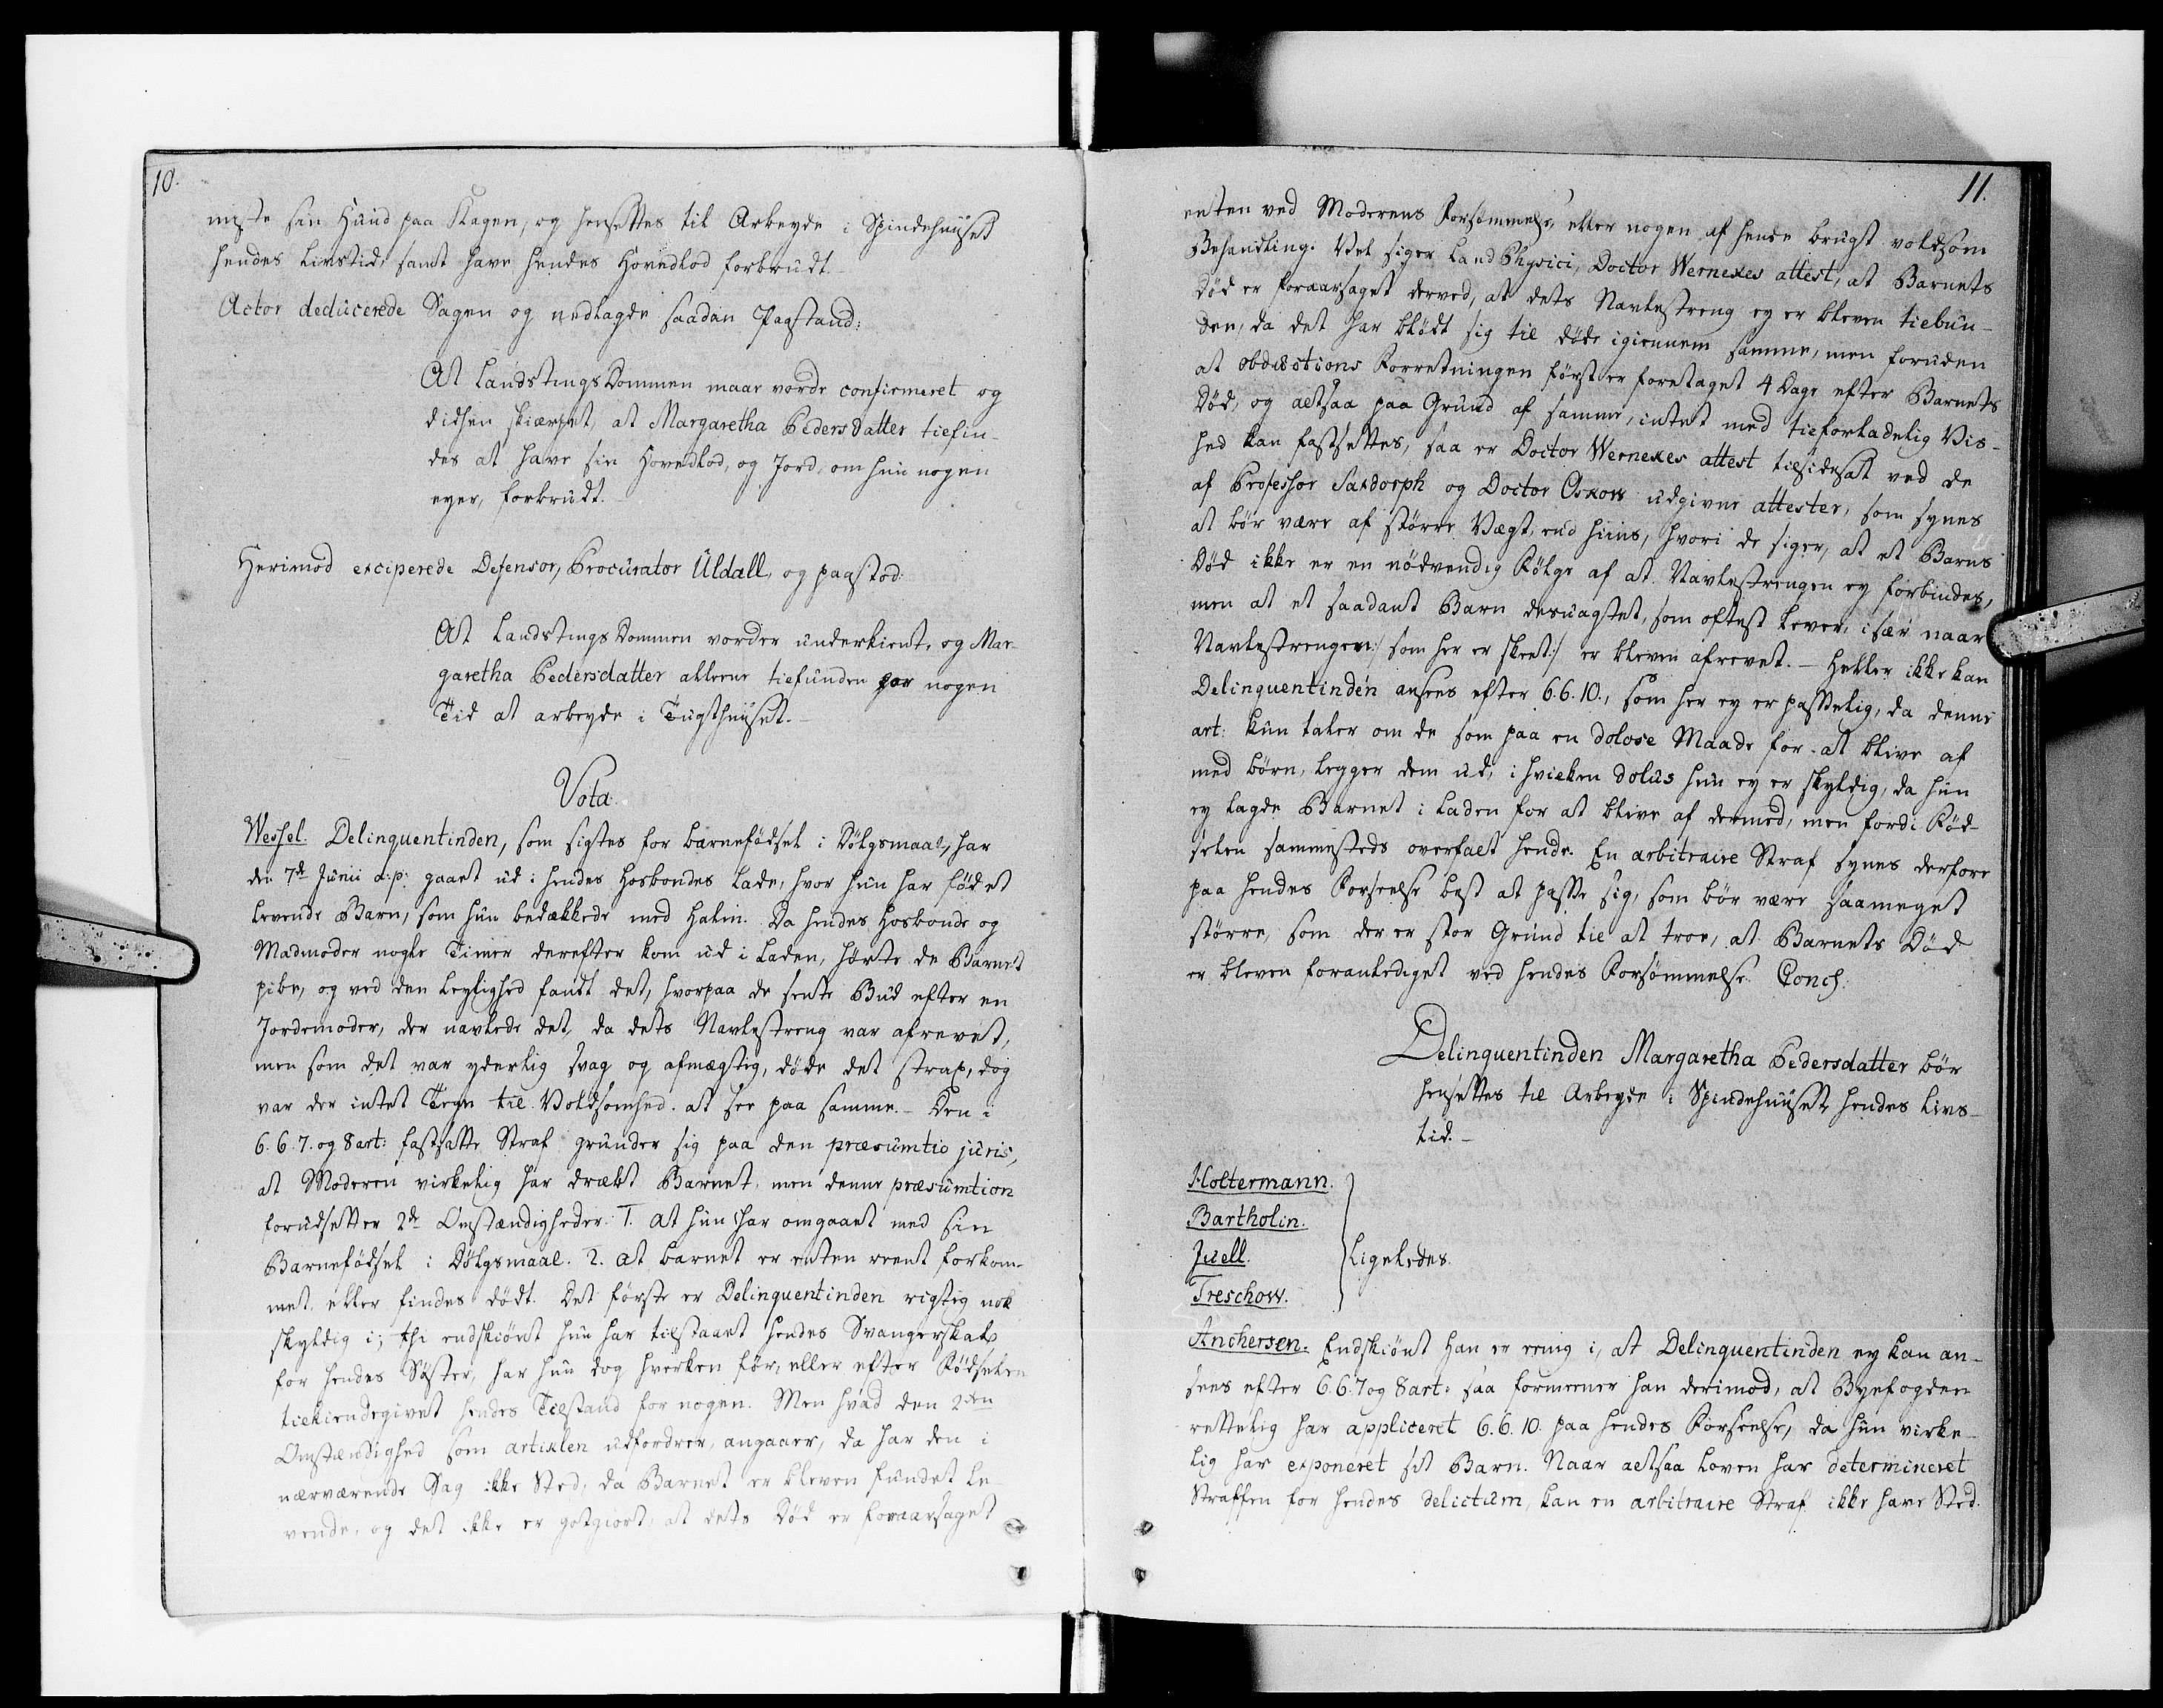 10.
miste sin Hud paa Kagen, og hensettes til Arbeyde i Spindehuuset
hendes Livstid, samt have hendes Hovedlod forbrudt.
Actor deducerede Sagen og nedlagde saadan Paastand:
At LandstingsDommen maae vorde confirmeret og
didhen skiærpet, at Margaretha Pedersdatter tilfin-
des at have sin Hovedlod, og Jord, om hun nogen
eyer, forbrudt.
Herimod exciperede Defensor, Procurator Uldall, og paastod:
At LandstingsDommen vorder underkient, og Mar-
garetha Pedersdatter alleene tilfunden paa nogen
Tid at arbeyde i Tugthuuset.-
Vota.
Wessel. Delinquentinden, som sigtes for barnefödsel i Dölgsmaal, har
den 7de Junii a:p: gaaet ud i hendes Hosbondes Lade, hvor hun har föd et
levende Barn, som hun bedækkede med Halm. Da hendes Hosbonde og
Madmoder nogle Timer derefter kom ud i Laden, hörte de Barnet
pibe, og ved den Leylighed fandt det, hvorpaa de sente Bud efter en
Jordemoder, der navlede det, da dets Navlestreng var afrevet,
men som det var yderlig svag og afmægtig, döde det strax, dog
var der intet Tegn til Voldsomhed at see paa samme.- Den i
6.6.7. og 8 art: fastsatte Straf grunder sig paa den præsumtio juris,
at Moderen virkelig har dræbt Barnet, men denne præsumtion
forudsetter 2de Omstændigheder. 1. At hun har omgaaet med sin
Barnefödsel i Dölgsmaal. 2. At barnet er enten reent forkom-
met, eller findes dödt. Det förste er Delinquentinden rigtig nok
skyldig i; thi endskiönt hun har tilstaaet hendes Svangerskab
for hendes Söster, har hun dog hverken för, eller efter Födselen
tilkiendegivet hendes Tilstand for nogen. Men hvad den 2den
Omstændighed som artiklen udfordrer, angaaer, da har den i
nærværende Sag ikke Sted, da Barnet er bleven fundet le-
vende, og det ikke er gotgiort, at dets Död er foraarsaget
11.
enten ved Moderens Forsömmelse, eller nogen af hende brugt voldsom
Behandling. Vel siger LandPhysici, Doctor Wernekes attest, at Barnets
Död er foraarsaget derved, at dets Navlestreng ey er bleven tilbun-
den, da det har blödt sig til döde igiennem samme, men foruden
at obductions Forretningen först er foretaget 4 Dage efter Barnets
Död, og altsaa paa Grund af samme, intet med tilforladelig Vis-
hed kan fastsettes, saa er Doctor Wernekes attest tilsidesat ved de
af Professor Saxdorph og Doctor Oskow udgivne attester, som synes
at bör være af större Vægt, end hiins, hvori de siger, at et Barns
Död ikke er en nödvendig Fölge af at Navlestrengen ey forbindes,
men at et saadant Barn desuagtet, som oftest lever, især naar
Navlestrengen /: som her er skeet :/ er bleven afrevet. - Heller ikke kan
Delinquentinden ansees efter 6.6.10., som her ey er passelig, da denne
art: kun taler om de som paa en dolose Maade for at blive af
med börn, legger dem ud, i hvilken dolus hun ey er skyldig, da hun
ey lagde Barnet i Laden for at blive af dermed, men fordi Föd-
selen sammesteds overfaldt hende. En arbitraire Straf synes derfore
paa hendes Forseelse best at passe sig, som bör være saameget
större, som der er stor Grund til at troe, at Barnets Död
er bleven foranlediget ved hendes Forsömmelse. Concl.
Delinquentinden Margaretha Pedersdatter bör
hensettes til Arbeyde i Spindehuuset hendes Livs-
tid.-
Holtermann.
Bartholin.
Juell. Ligeledes.
Treschow.
Anchersen. Endskiönt han er eenig i, at Delinquentinden ey kan an-
sees efter 6.6.7 og 8 art: saa formeener han derimod, at Byefogden
rettelig har appliceret 6.6.10. paa hendes Forseelse, da hun virke-
lig har exponeret sit Barn. Naar altsaa Loven har determineret
Straffen for hendes delictum, kan en arbitraire Straf ikke have Sted.